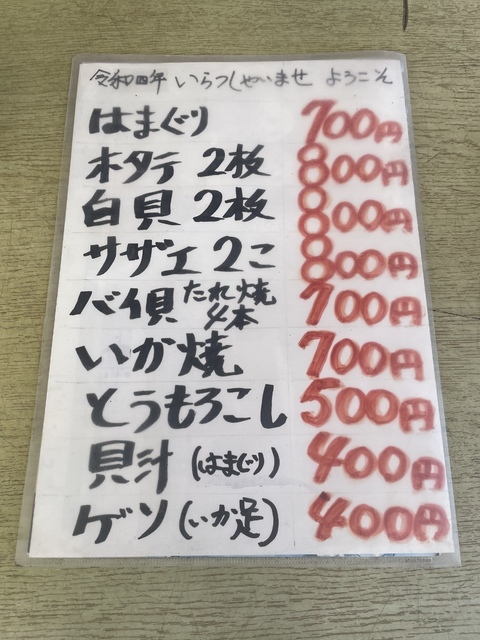 令和四年 いらっしゃいませ ようこそ
はまぐり 700円
ホタテ 2枚 800円
白貝 2枚 800円
サザエ 2こ 800円
バイ貝 たれ焼 4本 700円
いか焼 700円
とうもろこし 500円
貝汁 (はまぐり) 400円
ゲソ (いか足) 400円